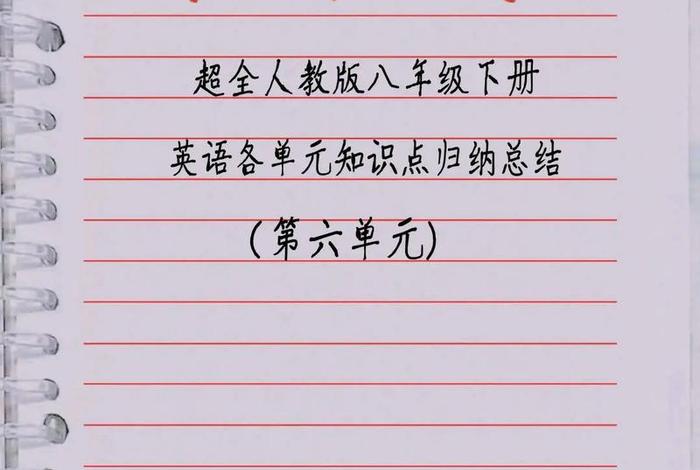 超全人教版八年级下册
英语各单元知识点归纳总结
(第六单元)